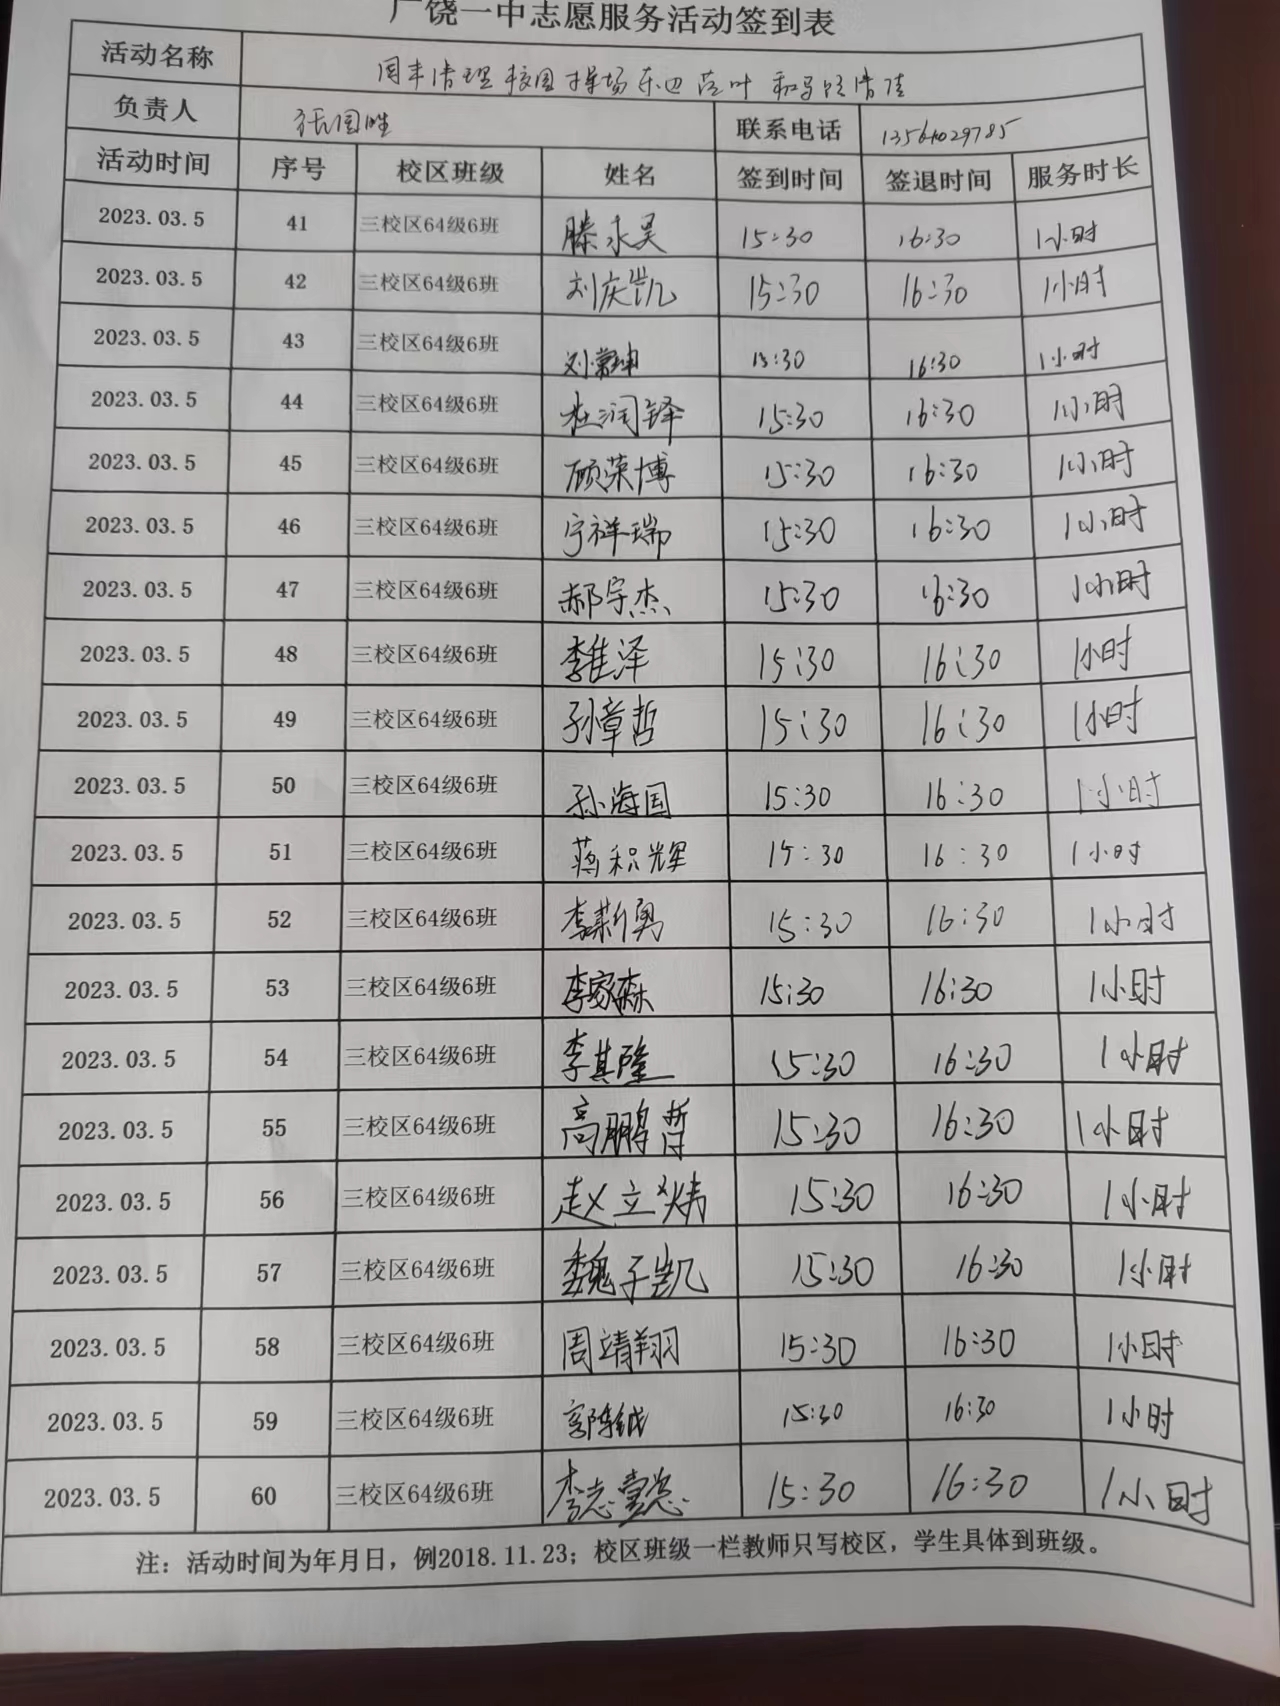 广饶一中志愿服务活动签到表
活动名称 清理校园操场东边落叶和马路清洁
负责人 张国胜 联系电话
活动时间 序号 校区班级 姓名 签到时间 签退时间 服务时长
2023.03.5 41 三校区64级6班 滕永昊 15:30 16:30 1小时
2023.03.5 42 三校区64级6班 刘庆凯 15:30 16:30 1小时
2023.03.5 43 三校区64级6班 15:30 16:30 1小时
2023.03.5 44 三校区64级6班 杜润铎 15:30 16:30 1小时
2023.03.5 45 三校区64级6班 顾荣博 15:30 16:30 1小时
2023.03.5 46 三校区64级6班 宁祥瑞 15:30 16:30 1小时
2023.03.5 47 三校区64级6班 郝宇杰 15:30 16:30 1小时
2023.03.5 48 三校区64级6班 李隹泽 15:30 16:30 1小时
2023.03.5 49 三校区64级6班 孙章哲 15:30 16:30 1小时
2023.03.5 50 三校区64级6班 孙海国 15:30 16:30 1小时
2023.03.5 51 三校区64级6班 蒋积辉 15:30 16:30 1小时
2023.03.5 52 三校区64级6班 15:30 16:30 1小时
2023.03.5 53 三校区64级6班 李家森 15:30 16:30 1小时
2023.03.5 54 三校区64级6班 李其隆 15:30 16:30 1小时
2023.03.5 55 三校区64级6班 高鹏哲 15:30 16:30 1小时
2023.03.5 56 三校区64级6班 赵立炜 15:30 16:30 1小时
2023.03.5 57 三校区64级6班 魏子凯 15:30 16:30 1小时
2023.03.5 58 三校区64级6班 周靖翔 15:30 16:30 1小时
2023.03.5 59 三校区64级6班 15:30 16:30 1小时
2023.03.5 60 三校区64级6班 15:30 16:30 1小时
注：活动时间为年月日，例2018.11.23；校区班级一栏教师只写校区，学生具体到班级。